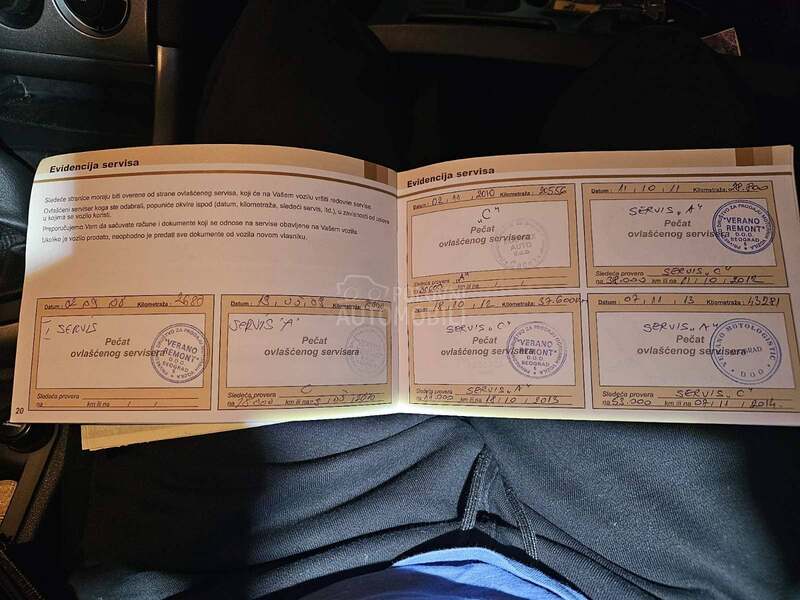 Evidencija servisa
Sledeće stranice moraju biti overene od strane ovlašćenog servisa, koji će na Vašem vozilu vršiti redovne servise.
Ovlašćeni serviser koga ste odabrali, popuniće okvire ispod (datum, kilometraža, sledeći servis, itd.), u zavisnosti od uslova
u kojima se vozilo koristi.
Preporučujemo Vam da sačuvate račune i dokumente koji se odnose na servise obavljene na Vašem vozilu.
Ukoliko je vozilo prodato, neophodno je predati sve dokumente od vozila novom vlasniku.
Datum: Kilometraža: 2680
I SERVIS
Pečat
ovlašćenog servisera
"VERANO
REMONT"
D.O.O.
BEOGRAD
Sledeća provera
na km ili na / /
20
Datum: Kilometraža:
SERVIS "A"
Pečat
ovlašćenog servisera
Sledeća provera
na km ili na
Evidencija servisa
Datum: 02.11.2010 Kilometraža: 20556
"C"
Pečat
ovlašćenog servisera
AUTO
Sledeća provera "A"
na km ili na / /
Datum: 11.10.11 Kilometraža: 28.800
SERVIS „A"
Pečat
ovlašćenog servisera
"VERANO
REMONT"
D.O.O.
BEOGRAD
Sledeća provera SERVIS „C"
na 38.000 km ili na 11/10/2012
Datum: 18/10/12 Kilometraža: 37.600
SERVIS „C"
Pečat
ovlašćenog servisera
"VERANO
REMONT"
D.O.O.
BEOGRAD
Sledeća provera SERVIS „A"
na km ili na 18/10/2013
Datum: 07.11.13 Kilometraža: 43281
SERVIS „A"
Pečat
ovlašćenog servisera
VERANO MOTOLOGISTIC
BEOGRAD
D.O.O.
Sledeća provera SERVIS „C"
na 53.000 km ili na 07/11/2014
POLOVNI
AUTOMOBILI